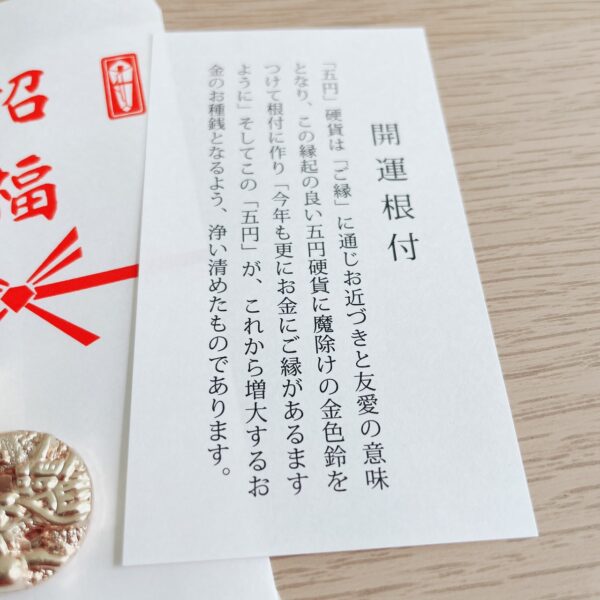 開運根付
「五円」硬貨は「ご縁」に通じお近づきと友愛の意味
となり、この縁起の良い五円硬貨に魔除けの金色鈴を
つけて根付に作り「今年も更にお金にご縁があるます
ように」そしてこの「五円」が、これから増大するお
金のお種銭となるよう、浄い清めたものであります。
招福